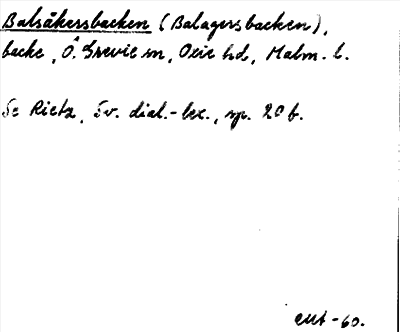 Balsåkersbacken (Balagersbacken),
backe, Ö. Grevie sn, Oxie hd, Malm. l.
Se Rietz, Sv. dial.-lex., sp. 20 f.
-60.